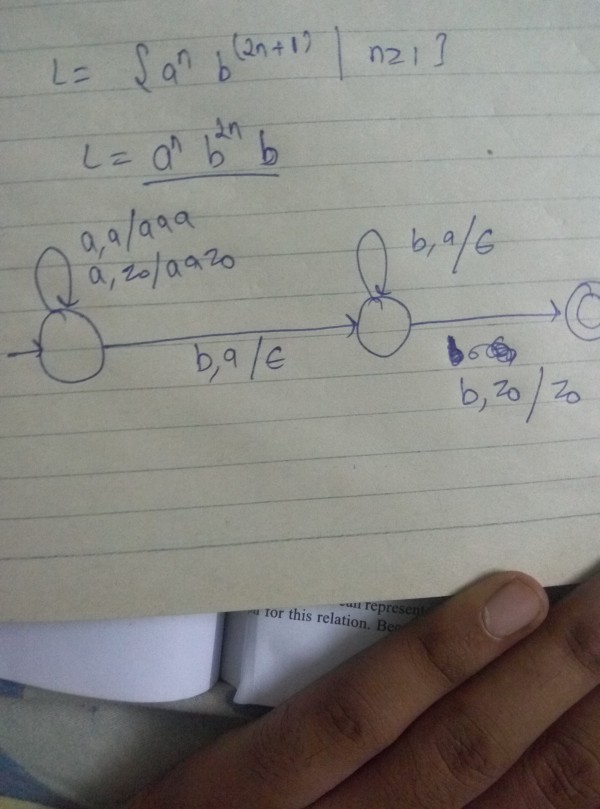 L = { a^n b^(2n+1) | n≥1 }
L = a^n b^2n b
a,a/aaa
a,z0/aaz0
b,a/ε
b,a/ε
b,z0/z0
represent
for this relation.